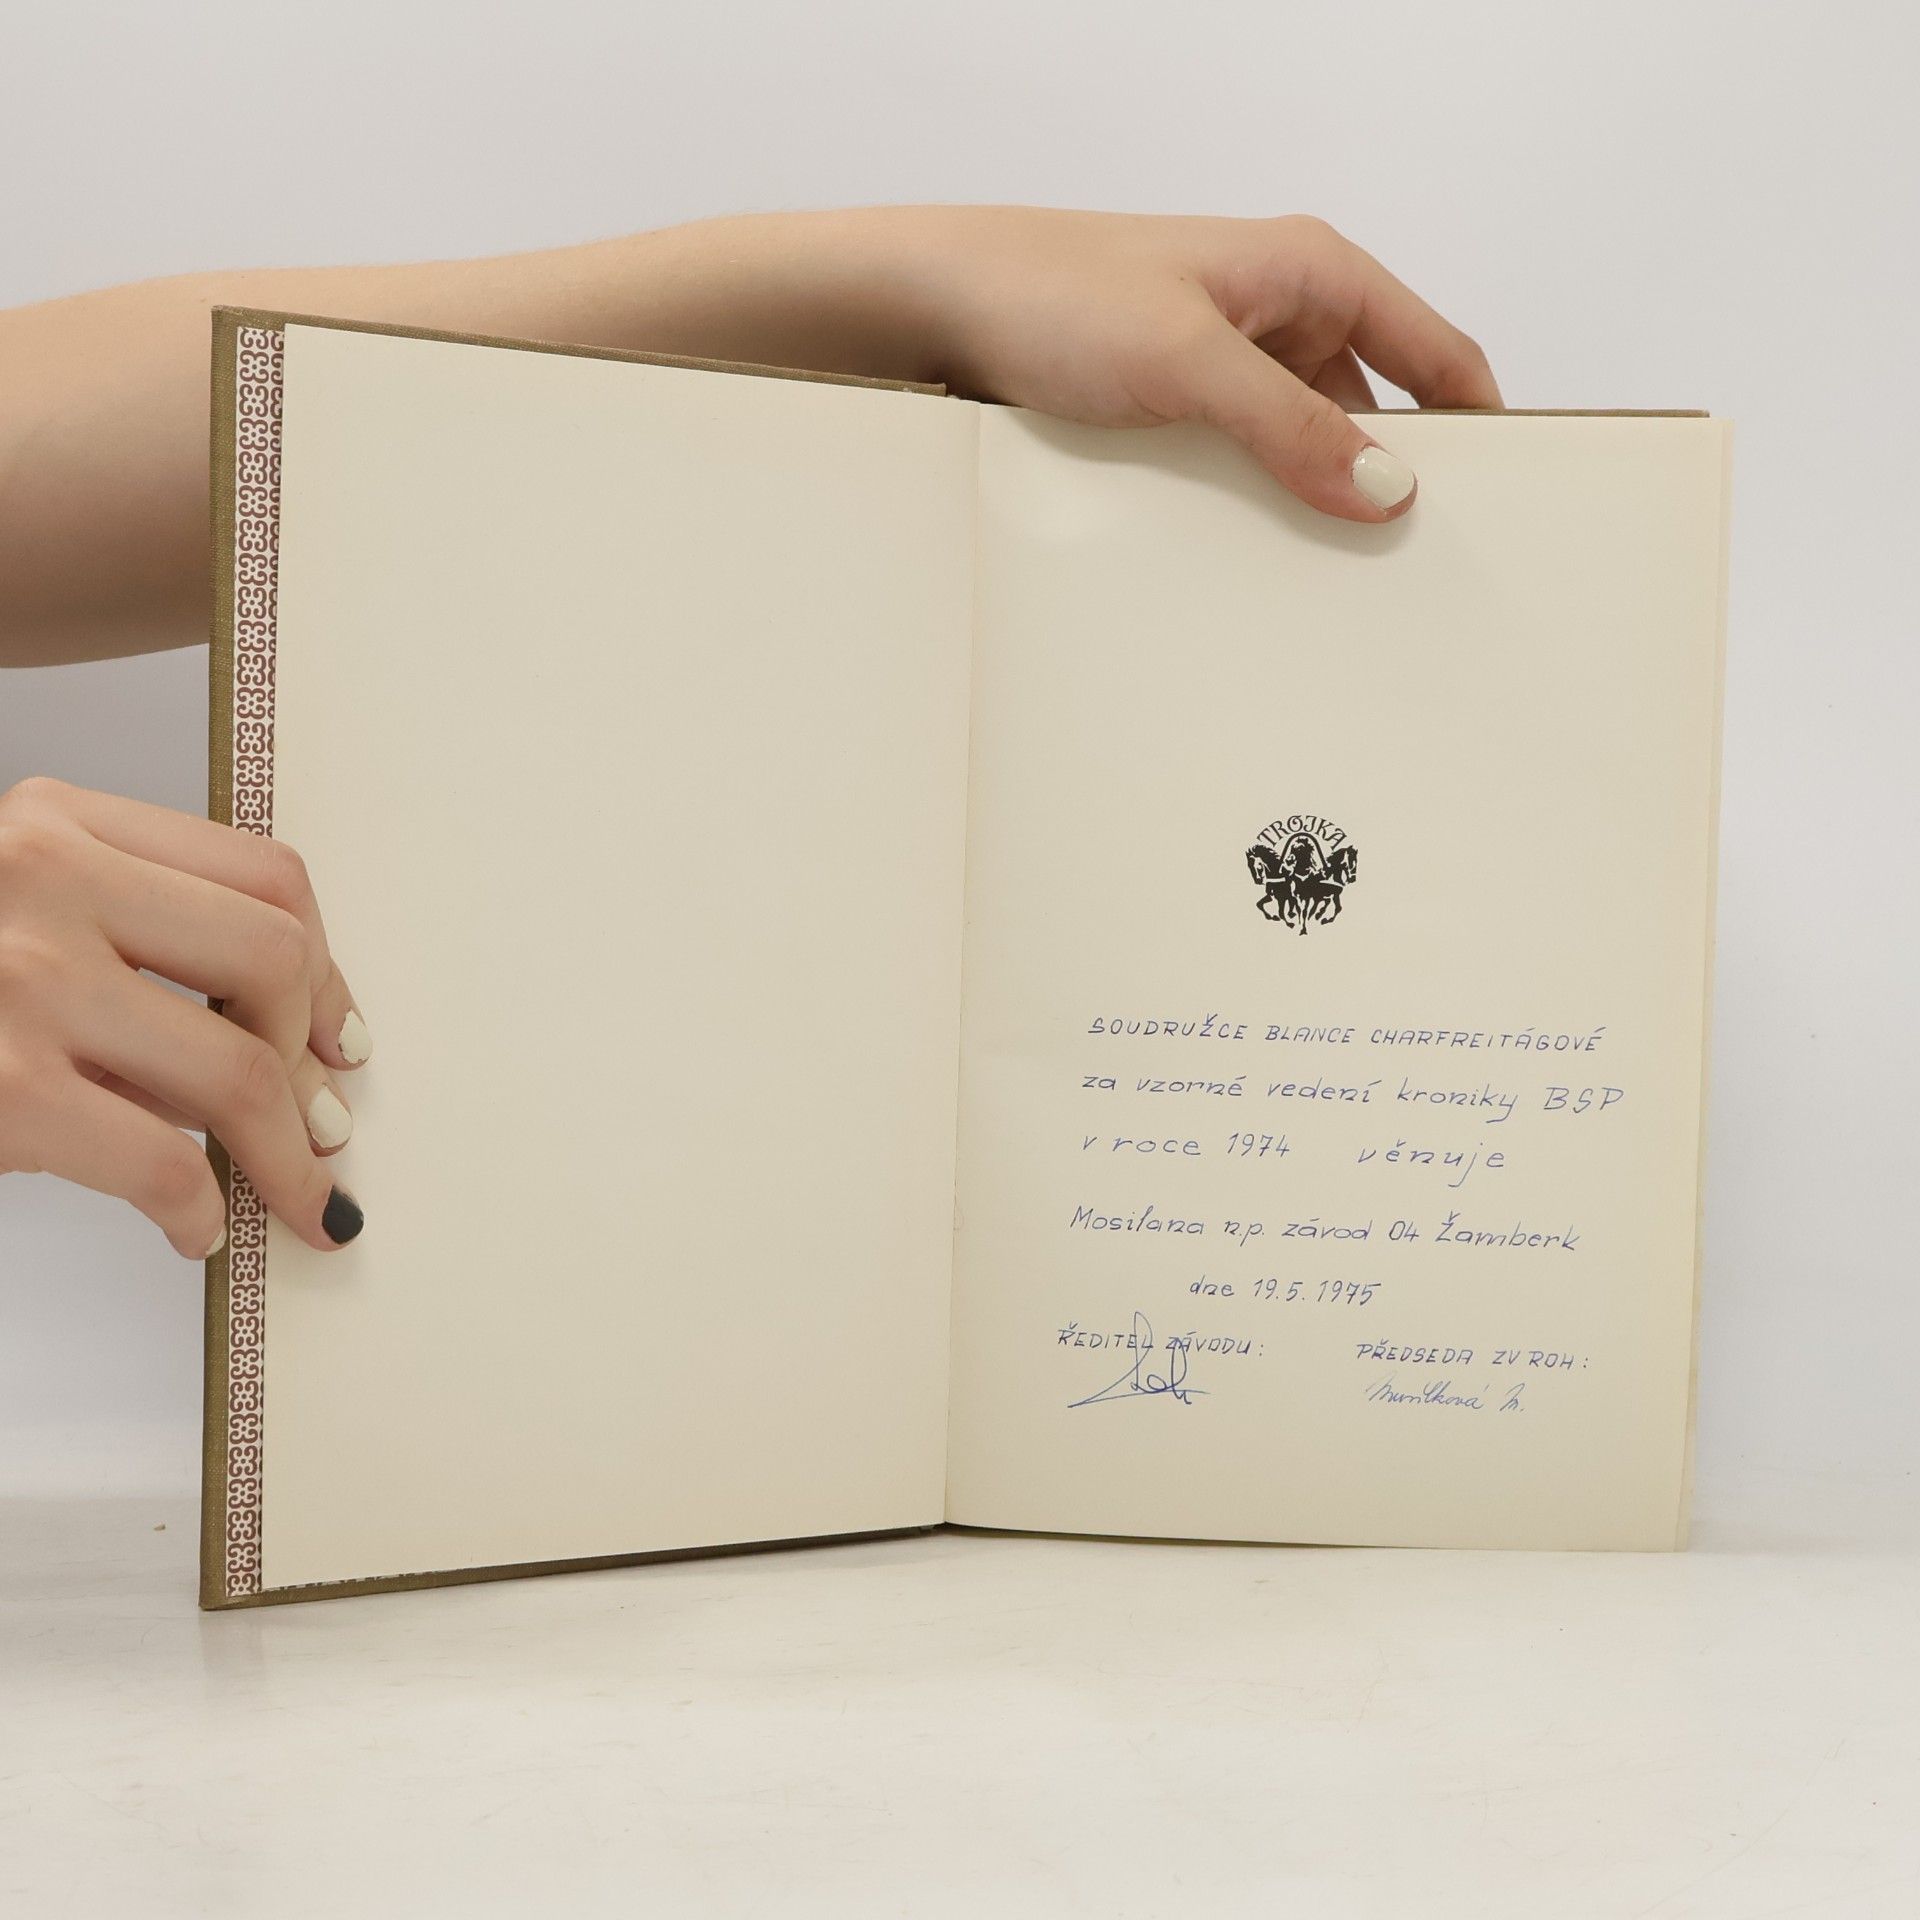 TROJKA
SOUDRUŽCE BLANCE CHARFREITÁGOVÉ
za vzorné vedení kroniky BSP
v roce 1974 věnuje
Mosilana n.p. závod 04 Žamberk
dne 19.5.1975
ŘEDITEL ZÁVODU: PŘEDSEDA ZV ROH:
M.